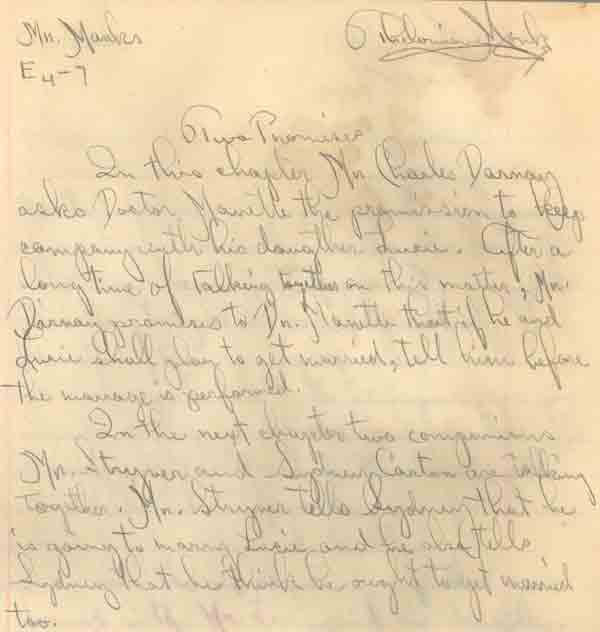 Mr. Marks Thelonious Monk
E4-7
Two Promises
In this chapter Mr. Charles Darnay
asks Doctor Manette the promission to keep
company with his daughter Lucie. After a
long time of talking together on this matter, Mr.
Darnay promises to Dr. Manette that if he and
Lucie shall play to get married, tell him before
the marriage is performed.
In the next chapter two companions
Mr. Stryver and Sydney Carton are talking
together. Mr. Stryver tells Sydney that he
is going to marry Lucie and he also tells
Sydney that he thinks he ought to get married
too.